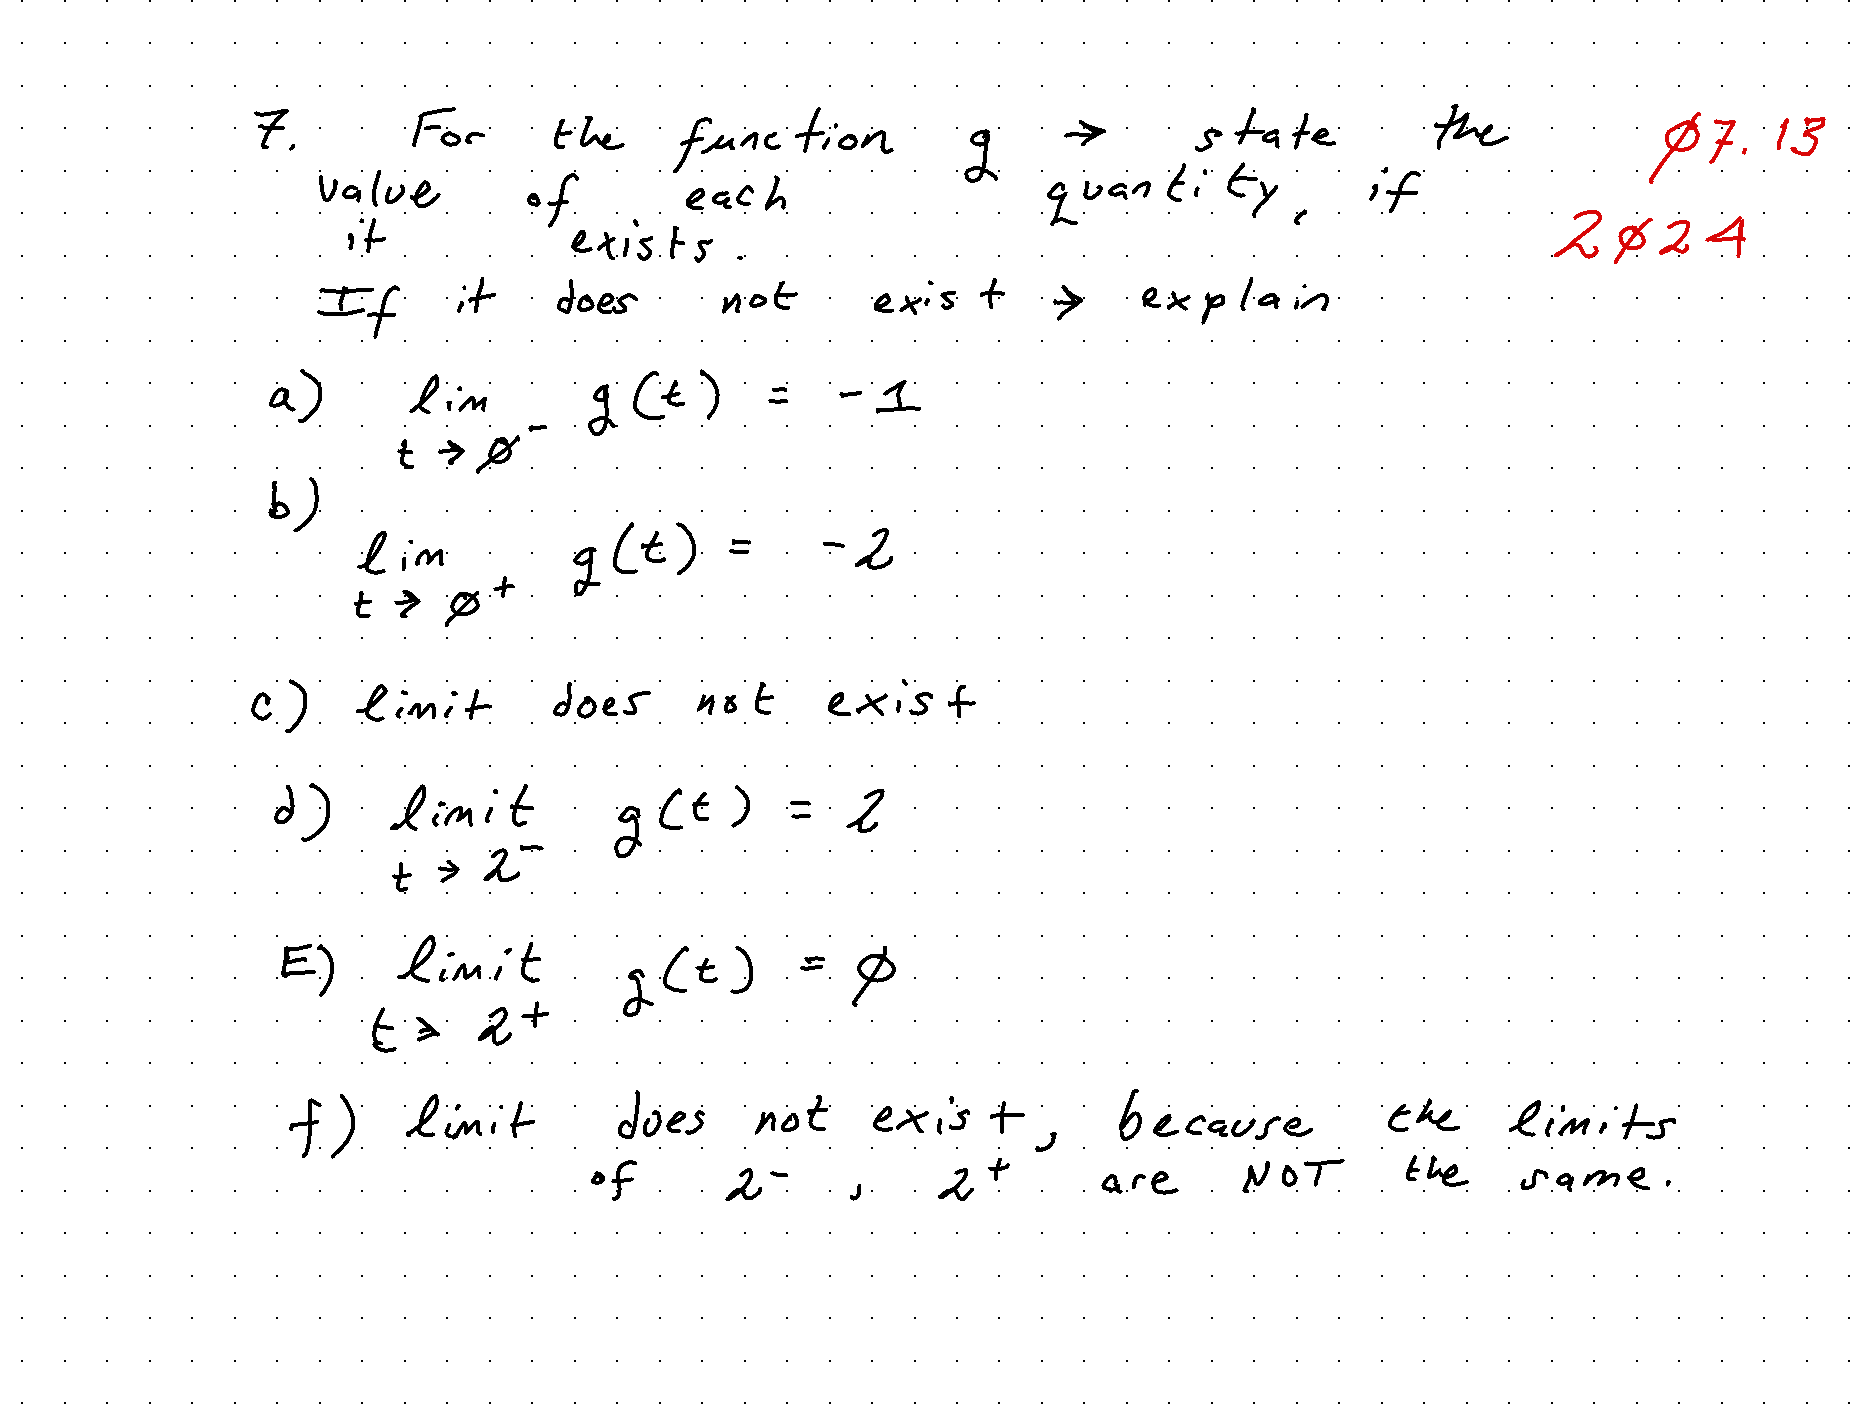 7. For the function g → state the
ø7.13
value of each quantity, if
2ø24
it exists.
If it does not exist → explain
a) lim g(t) = -1
t → ø⁻
b)
lim g(t) = -2
t → ø⁺
c) limit does not exist
d) limit g(t) = 2
t → 2⁻
E) limit g(t) = ø
t → 2⁺
f) limit does not exist, because the limits
of 2⁻, 2⁺ are NOT the same.